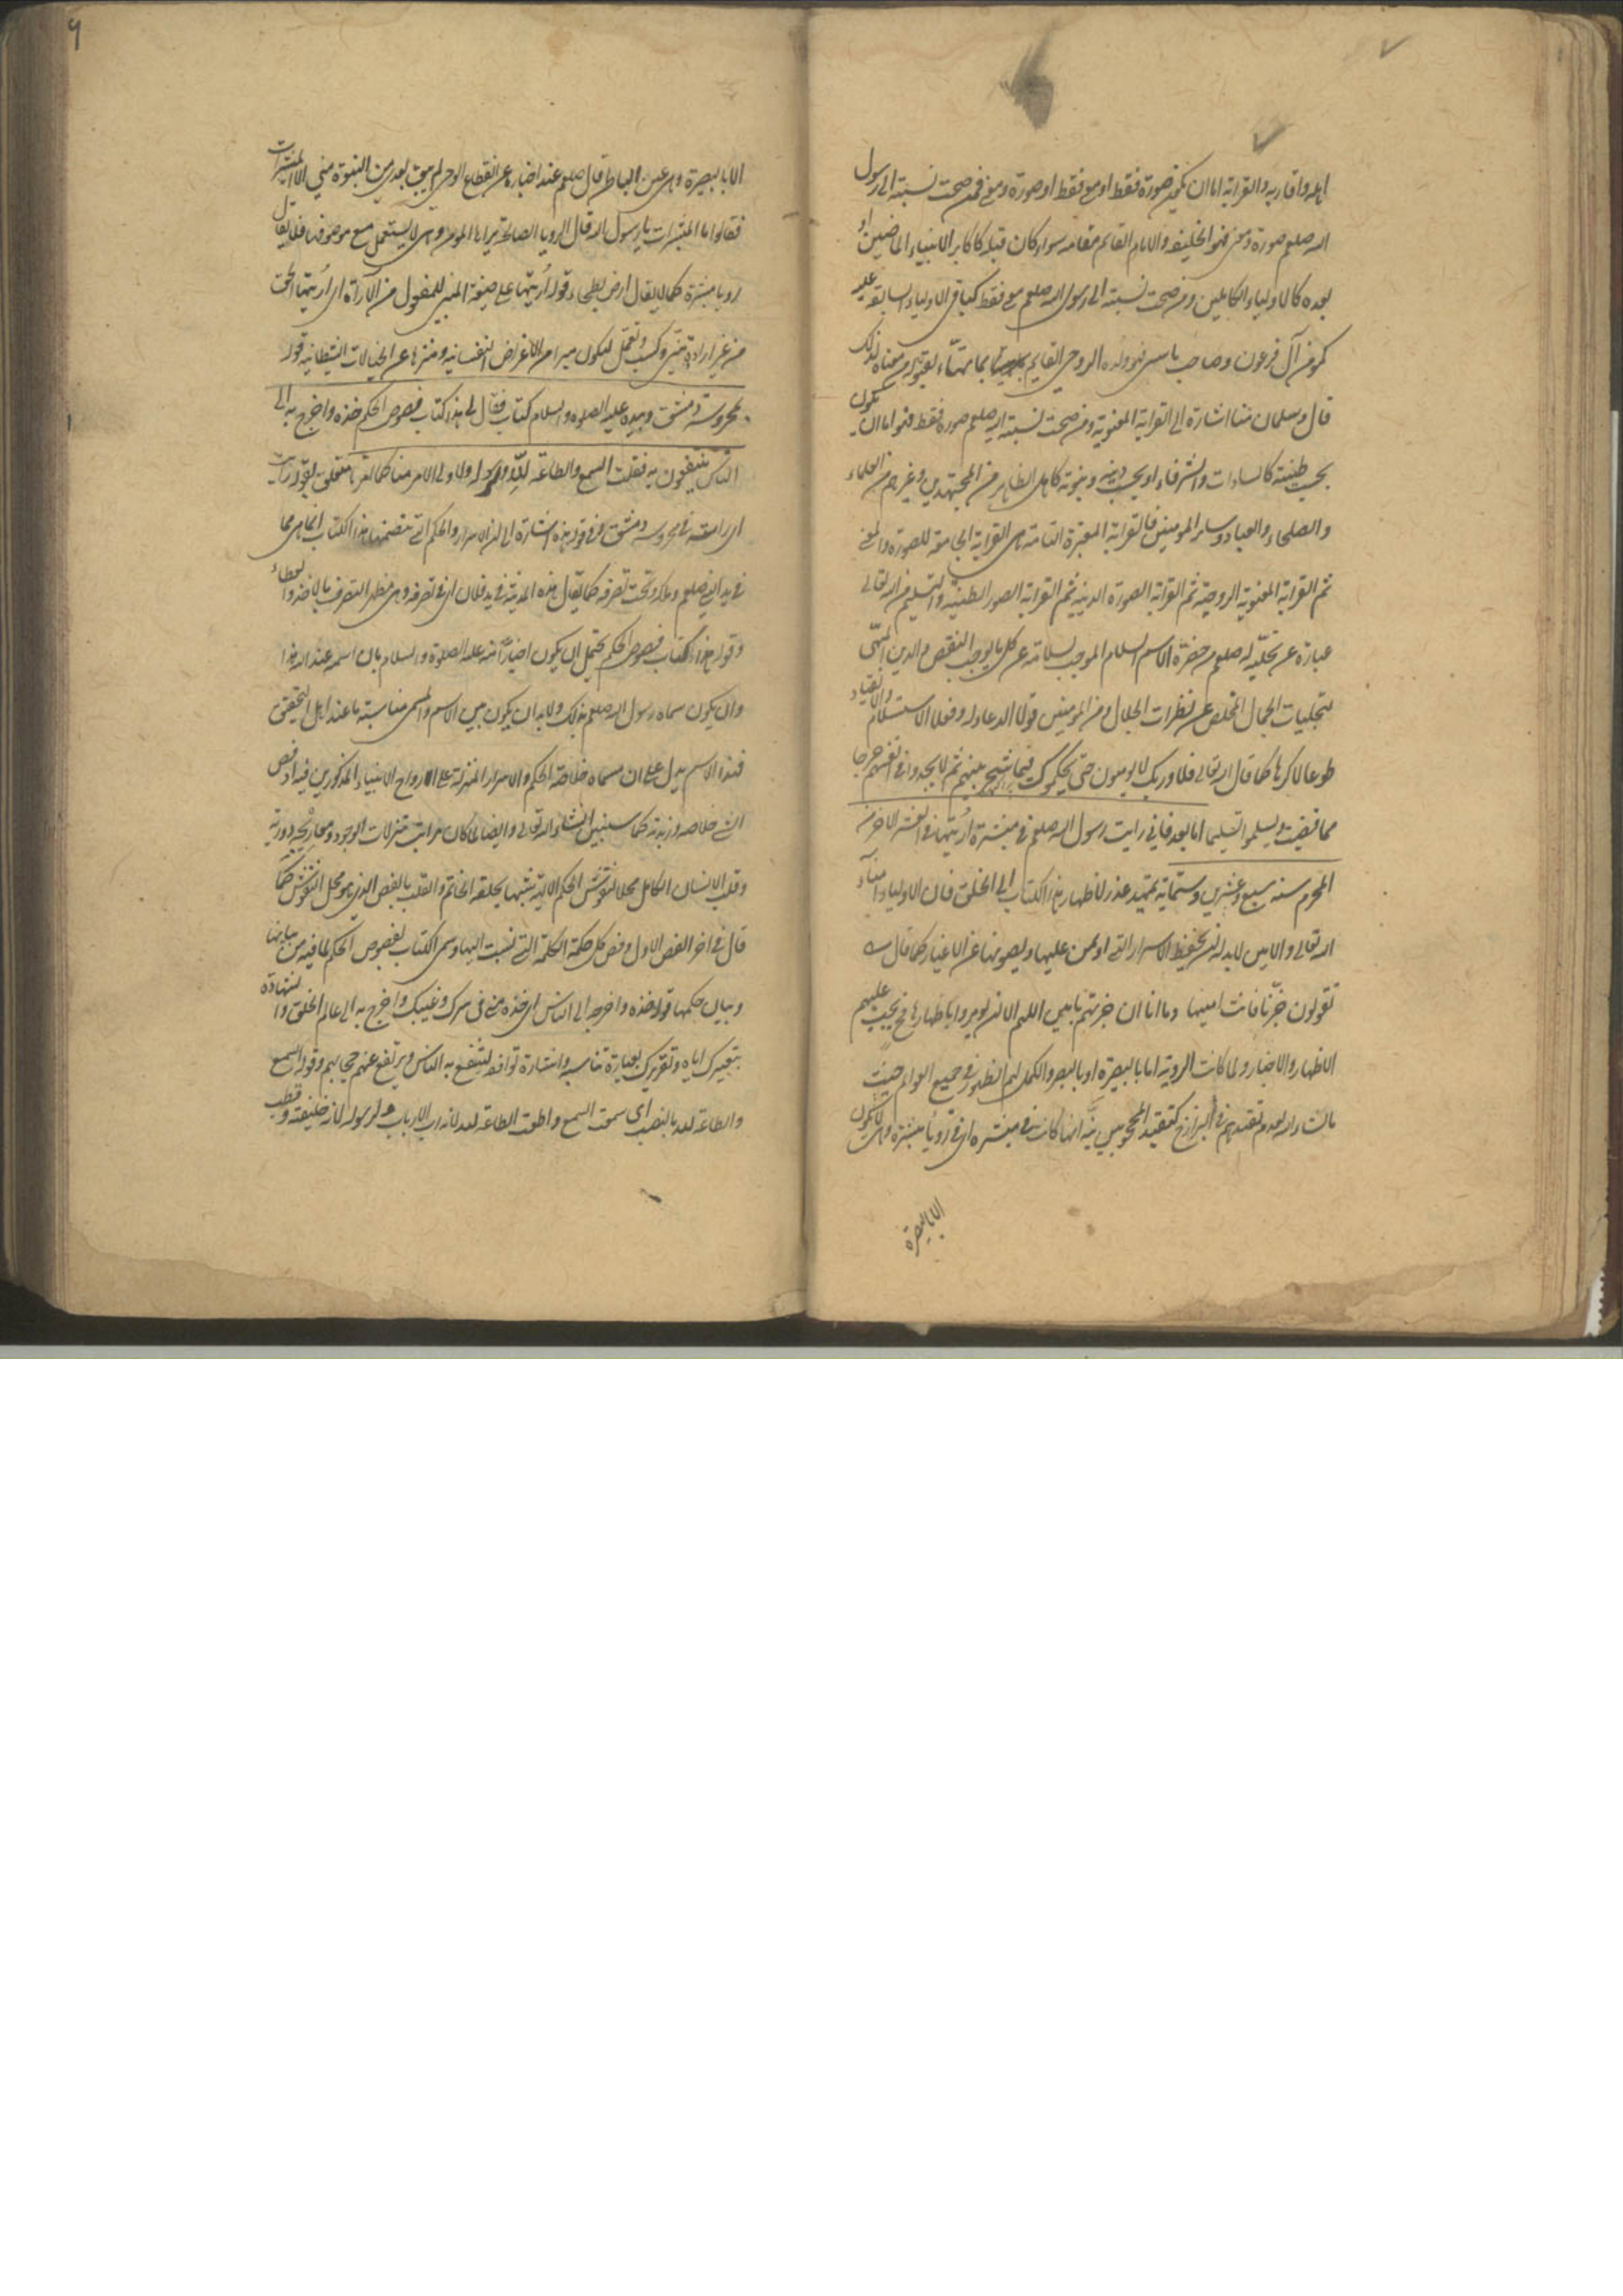 اهله واقاربه والقرابة اما ان تكون صورة فقط او معنى فقط او صورة ومعنى فمن صحت نسبته الى رسول
الله صلعم صورة ومعنى فهو الخليفة والامام القائم مقامه سواء كان قبله كاكابر الانبياء الماضين او
بعده كالاولياء الكاملين ومن صحت نسبته الى رسول الله صلعم معنى فقط كباقى الاولياء السابقة عليه
كمؤمن آل فرعون وصاحب ياسين فهو ولده الروحى القائم بما تهيأ لقبوله من معناه لذلك
قال وسلمان منا اشارة الى القرابة المعنوية ومن صحت نسبته اليه صلعم صورة فقط فهو اما ان يكون
بحسب طينته كالسادات والشرفاء او بحسب دينه ونبوته كاهل الظاهر من المجتهدين وغيرهم من العلماء
والصلحاء والعباد وسائر المومنين فالقرابة المعتبرة التامة هى القرابة الجامعة للصورة والمعنى
ثم القرابة المعنوية الروحية ثم القرابة الصورة الدينية ثم القرابة الصورة الطينية والتسليم من الله تعالى
عبارة عن تجليه له صلعم من حضرة الاسم السلام الموجب لسلامته عن كل ما يوجب النقص والدين المهيى
لتجليات الجمال المخلص عن نظرات الجلال ومن المومنين قولا الدعاء له وفعلا الاستسلام والانقياد
طوعا لا كرها كما قال الله تعالى فلا وربك لا يومنون حتى يحكموك فيما شجر بينهم ثم لا يجدوا فى انفسهم حرجا
مما قضيت ويسلموا تسليما اما بعد فانى رايت رسول الله صلعم فى مبشرة اُريتها فى العشر الاخر من
المحرم سنه سبع وعشرين وستمايه تمهيد عذر لاظهار هذا الكتاب الى الخلق فان الاولياء امناء
الله تعالى والامين لا بد له ان يحفظ الاسرار التى اوتمن عليها ويصونها عن الاغيار كما قال
تقولون خبّرنا فانت امينها وما انا ان خبرتهم بامين اللهم الا ان يومروا باظهارها فح يجب عليهم
الاظهار والاخبار ولما كانت الروية اما بالبصيرة او بالبصر والكمل لهم الظهور فى جميع العوالم حيث
ما شاء الله لعدم تقيدهم فى البرازخ كتقيد المحجوبين بيّن انها كانت فى مبشره اى فى رؤيا مبشرة وهى لا تكون
الا بالبصيرة
٩
الا بالبصيرة وهى عين الباطن قال صلعم عند اخباره عن انقطاع الوحى لم يبق بعدى من النبوة شيى الا المبشرات
فقالوا ما المبشرات يا رسول الله قال الرويا الصالحة يراها المومن وهى لا يستعمل مع موصوفها فلا يقال
رويا مبشرة كما لا يقال ارض بطحاء وقوله اُريتها على صيغة المبنى للمفعول من الاراة اى اُريتها الحق
من غير ارادة منى وكسب وتعمل ليكون مبرا من الاغراض النفسانية ومنزها عن الخيالات الشيطانية قوله
بمحروسة دمشق وبيده عليه الصلوه والسلام كتاب فقال لى هذا كتاب فصوص الحكم خذه واخرج به الى
الناس ينتفعون به فقلت السمع والطاعة لله ولرسوله ولاولى الامر منا كما امرنا متعلق بقوله رايت
اى رايته فى محروسه دمشق وفى قوله هذه اشارة الى ان الاسرار والحكم التى تتضمنها هذا الكتاب انما هى مما
فى يد النبى صلعم وملكه وتحت تصرفه كما يقال هذه المدينة فى يد فلان اى فى تصرفه وهى مظهر التصرف بالاخذ والعطاء
وقوله هذا كتاب فصوص الحكم يحتمل ان يكون اخبارًا منه عليه الصلوة والسلام بان اسمه عند الله هذا
وان يكون سماه رسول الله صلعم بذلك ولا بد ان يكون بين الاسم والمسمى مناسبة ما عند اهل التحقيق
فهذا الاسم يدل على ان مسماه خلاصة الحكم والاسرار المنزلة على الارواح الانبياء المذكورين فيه اذ فص
الشئ خلاصه وزبدته كما سنبين انشاء الله تعالى وايضا لما كان مراتب تنزلات الوجود ومعارجه دورية
وقلب الانسان الكامل محلا لنقوش الحكم الالهية شبهها بحلقه الخاتم والقلب بالفص الذى هو محل النقوش كما
قال فى اخر الفص الاول وفص كل حكمة الكلمة التى نسبت اليها وسمى الكتاب بفصوص الحكم لما فيه من بيانها
وبيان حكمها قوله خذه واخرج به الى الناس اى خذه منى فى سرك وغيبك واخرج به الى عالم الخلق والشهادة
بتعبيرك اياه وتقريرك بعبارة تناسبه واشارة توافقه لينتفع به الناس ويرتفع عنهم حجابهم وقوله السمع
والطاعة لله بالنصب اى سمعت السمع واطعت الطاعة لله لانه رب الارباب ولرسوله لانه خليفته وقطب